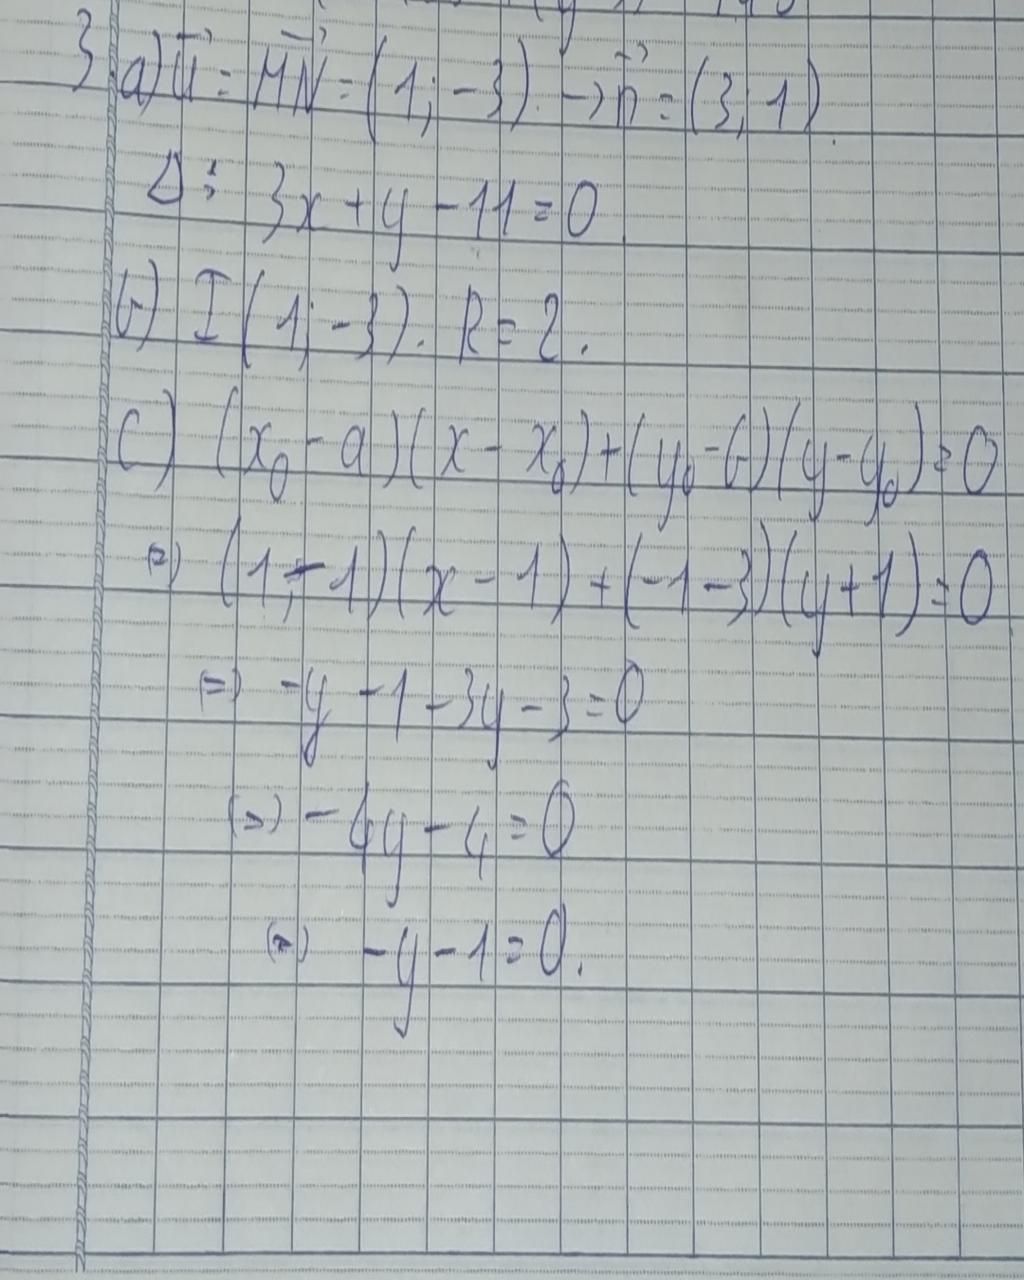 3 a) u⃗ = MN⃗ = (1; -3). → n⃗ = (3; 1).
Δ: 3x + y - 11 = 0
b) I (1; -3). R = 2.
c) (x₀ - a)(x - x₀) + (y₀ - b)(y - y₀) = 0
(=) (1 - 1)(x - 1) + (-1 - 3)(y + 1) = 0
(=) -y - 1 - 3y - 3 = 0
(=) -4y - 4 = 0
(=) -y - 1 = 0.